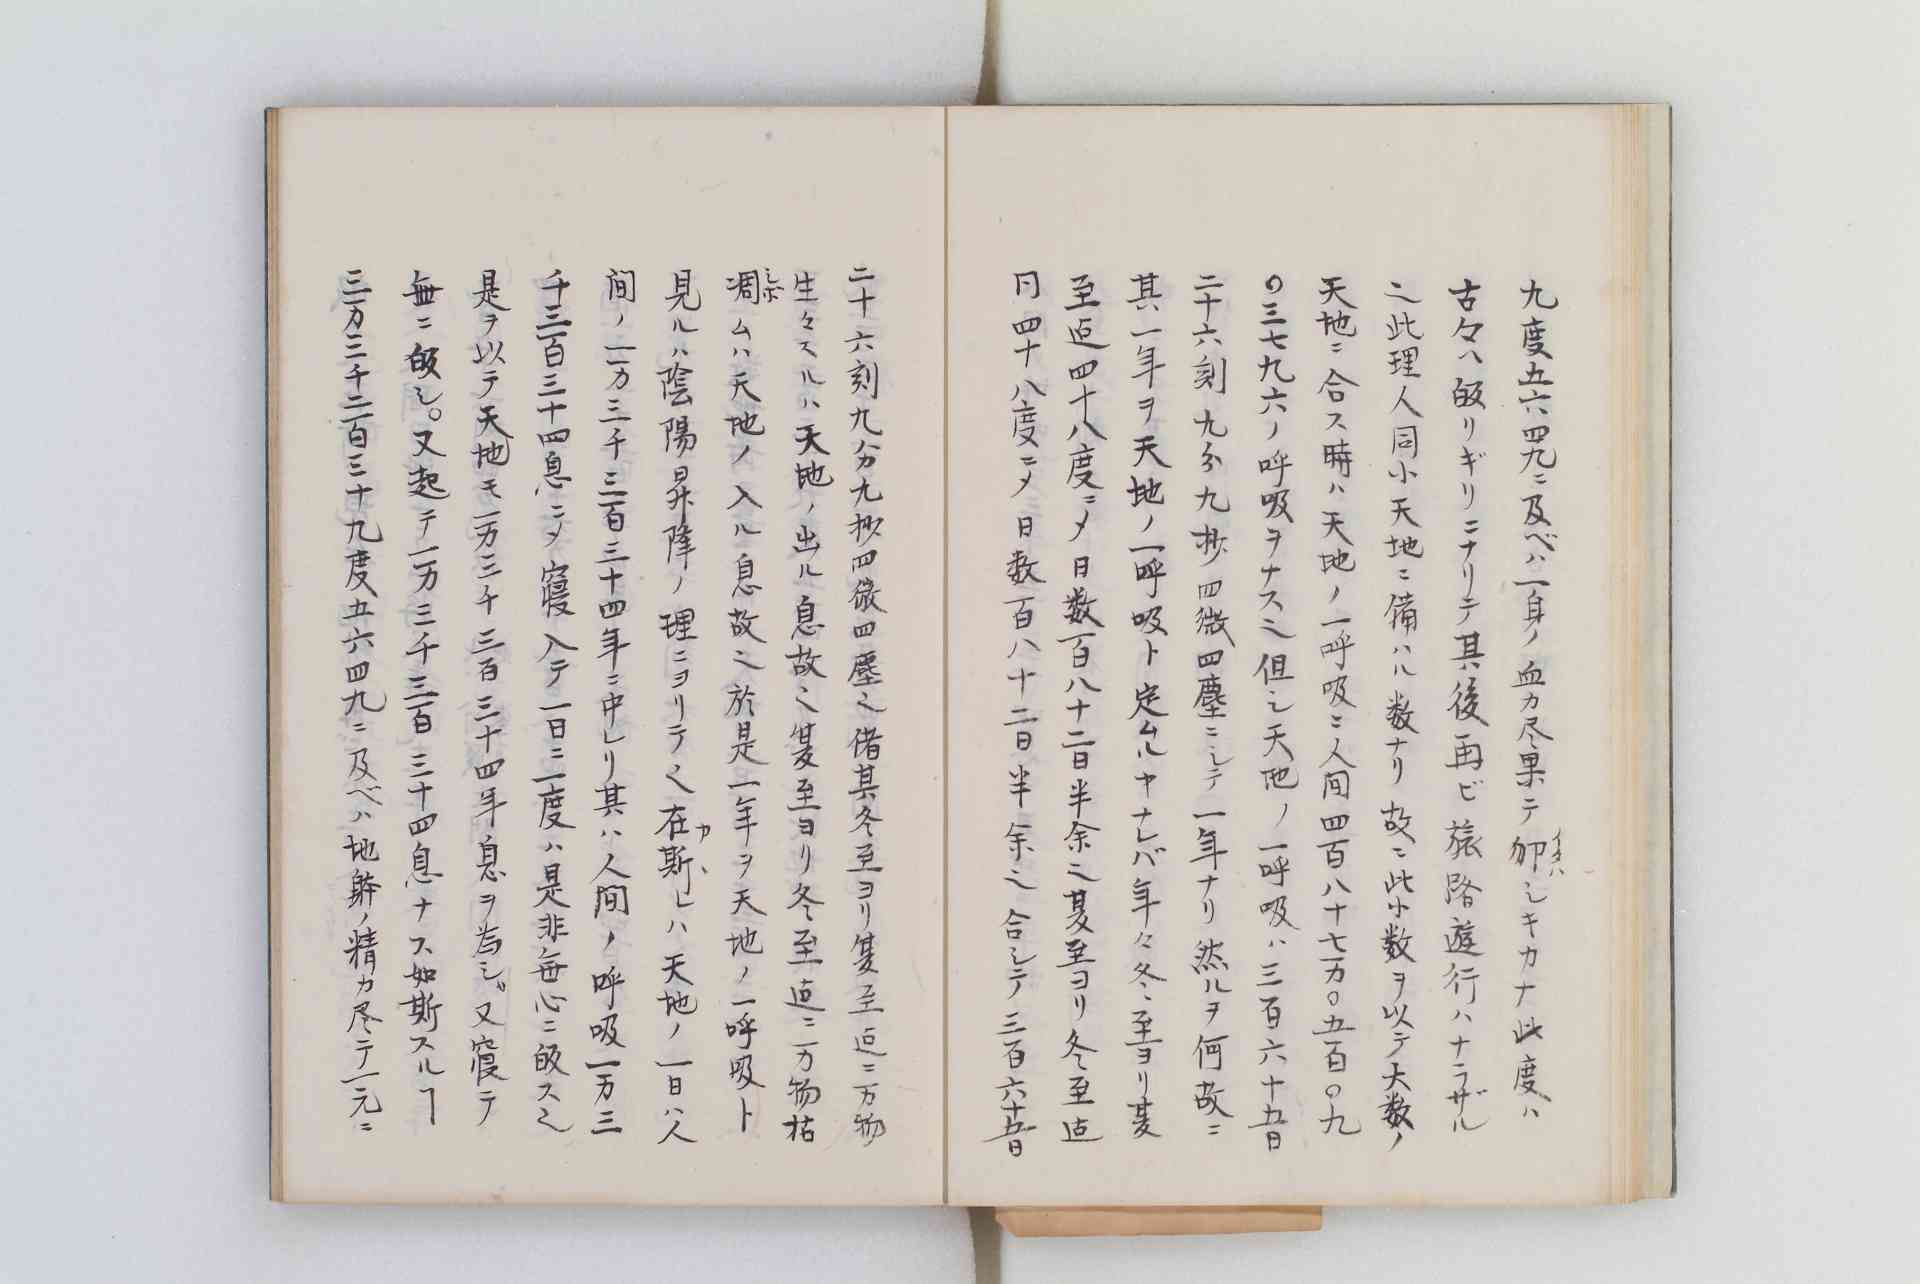 九度五六四九ニ及ベハ一身ノ血力尽果テ卯シキカナ此度ハ
古々ハ皈リギリニナリテ其後再ビ旅路遊行ハナラザル
之此理人同小天地ニ備ハル数ナリ故ニ此小数ヲ以テ大数ノ
天地ニ合ス時ハ天地ノ一呼吸ニ人间四百八十七万〇五百〇九
〇三七九六ノ呼吸ヲナス之但シ天地ノ一呼吸ハ三百六十五日
二十六刻九分九抄四微四塵ニシテ一年ナリ然ルヲ何故ニ
其一年ヲ天地ノ一呼吸ト定ムルヤナレバ年々冬至ヨリ夏
至迠四十八度ニメ日数百八十二日半余之夏至ヨリ冬至迠
同四十八度ニメ日数百八十二日半余之合シテ三百六十五日
二十六刻九分九抄四微四塵之偖其冬至ヨリ夏至迠ニ万物
生々スルハ天地ノ出ル息故之夏至ヨリ冬至迠ニ万物枯
凋ムハ天地ノ入ル息故之於是一年ヲ天地ノ一呼吸ト
見ルハ陰陽昇降ノ理ニヨリテ之在斯レハ天地ノ一日ハ人
间ノ一万三千三百三十四年ニ中レリ其ハ人间ノ呼吸一万三
千三百三十四息ニメ寝入テ一日ニ一度ハ是非無心ニ皈ス之
是ヲ以テ天地モ一万三千三百三十四年息ヲ為シ又寝テ
無ニ皈シ。又起テ一万三千三百三十四息ナス如斯スルヿ
三万三千二百三十九度五六四九ニ及ベハ地躰ノ精力尽テ一元ニ